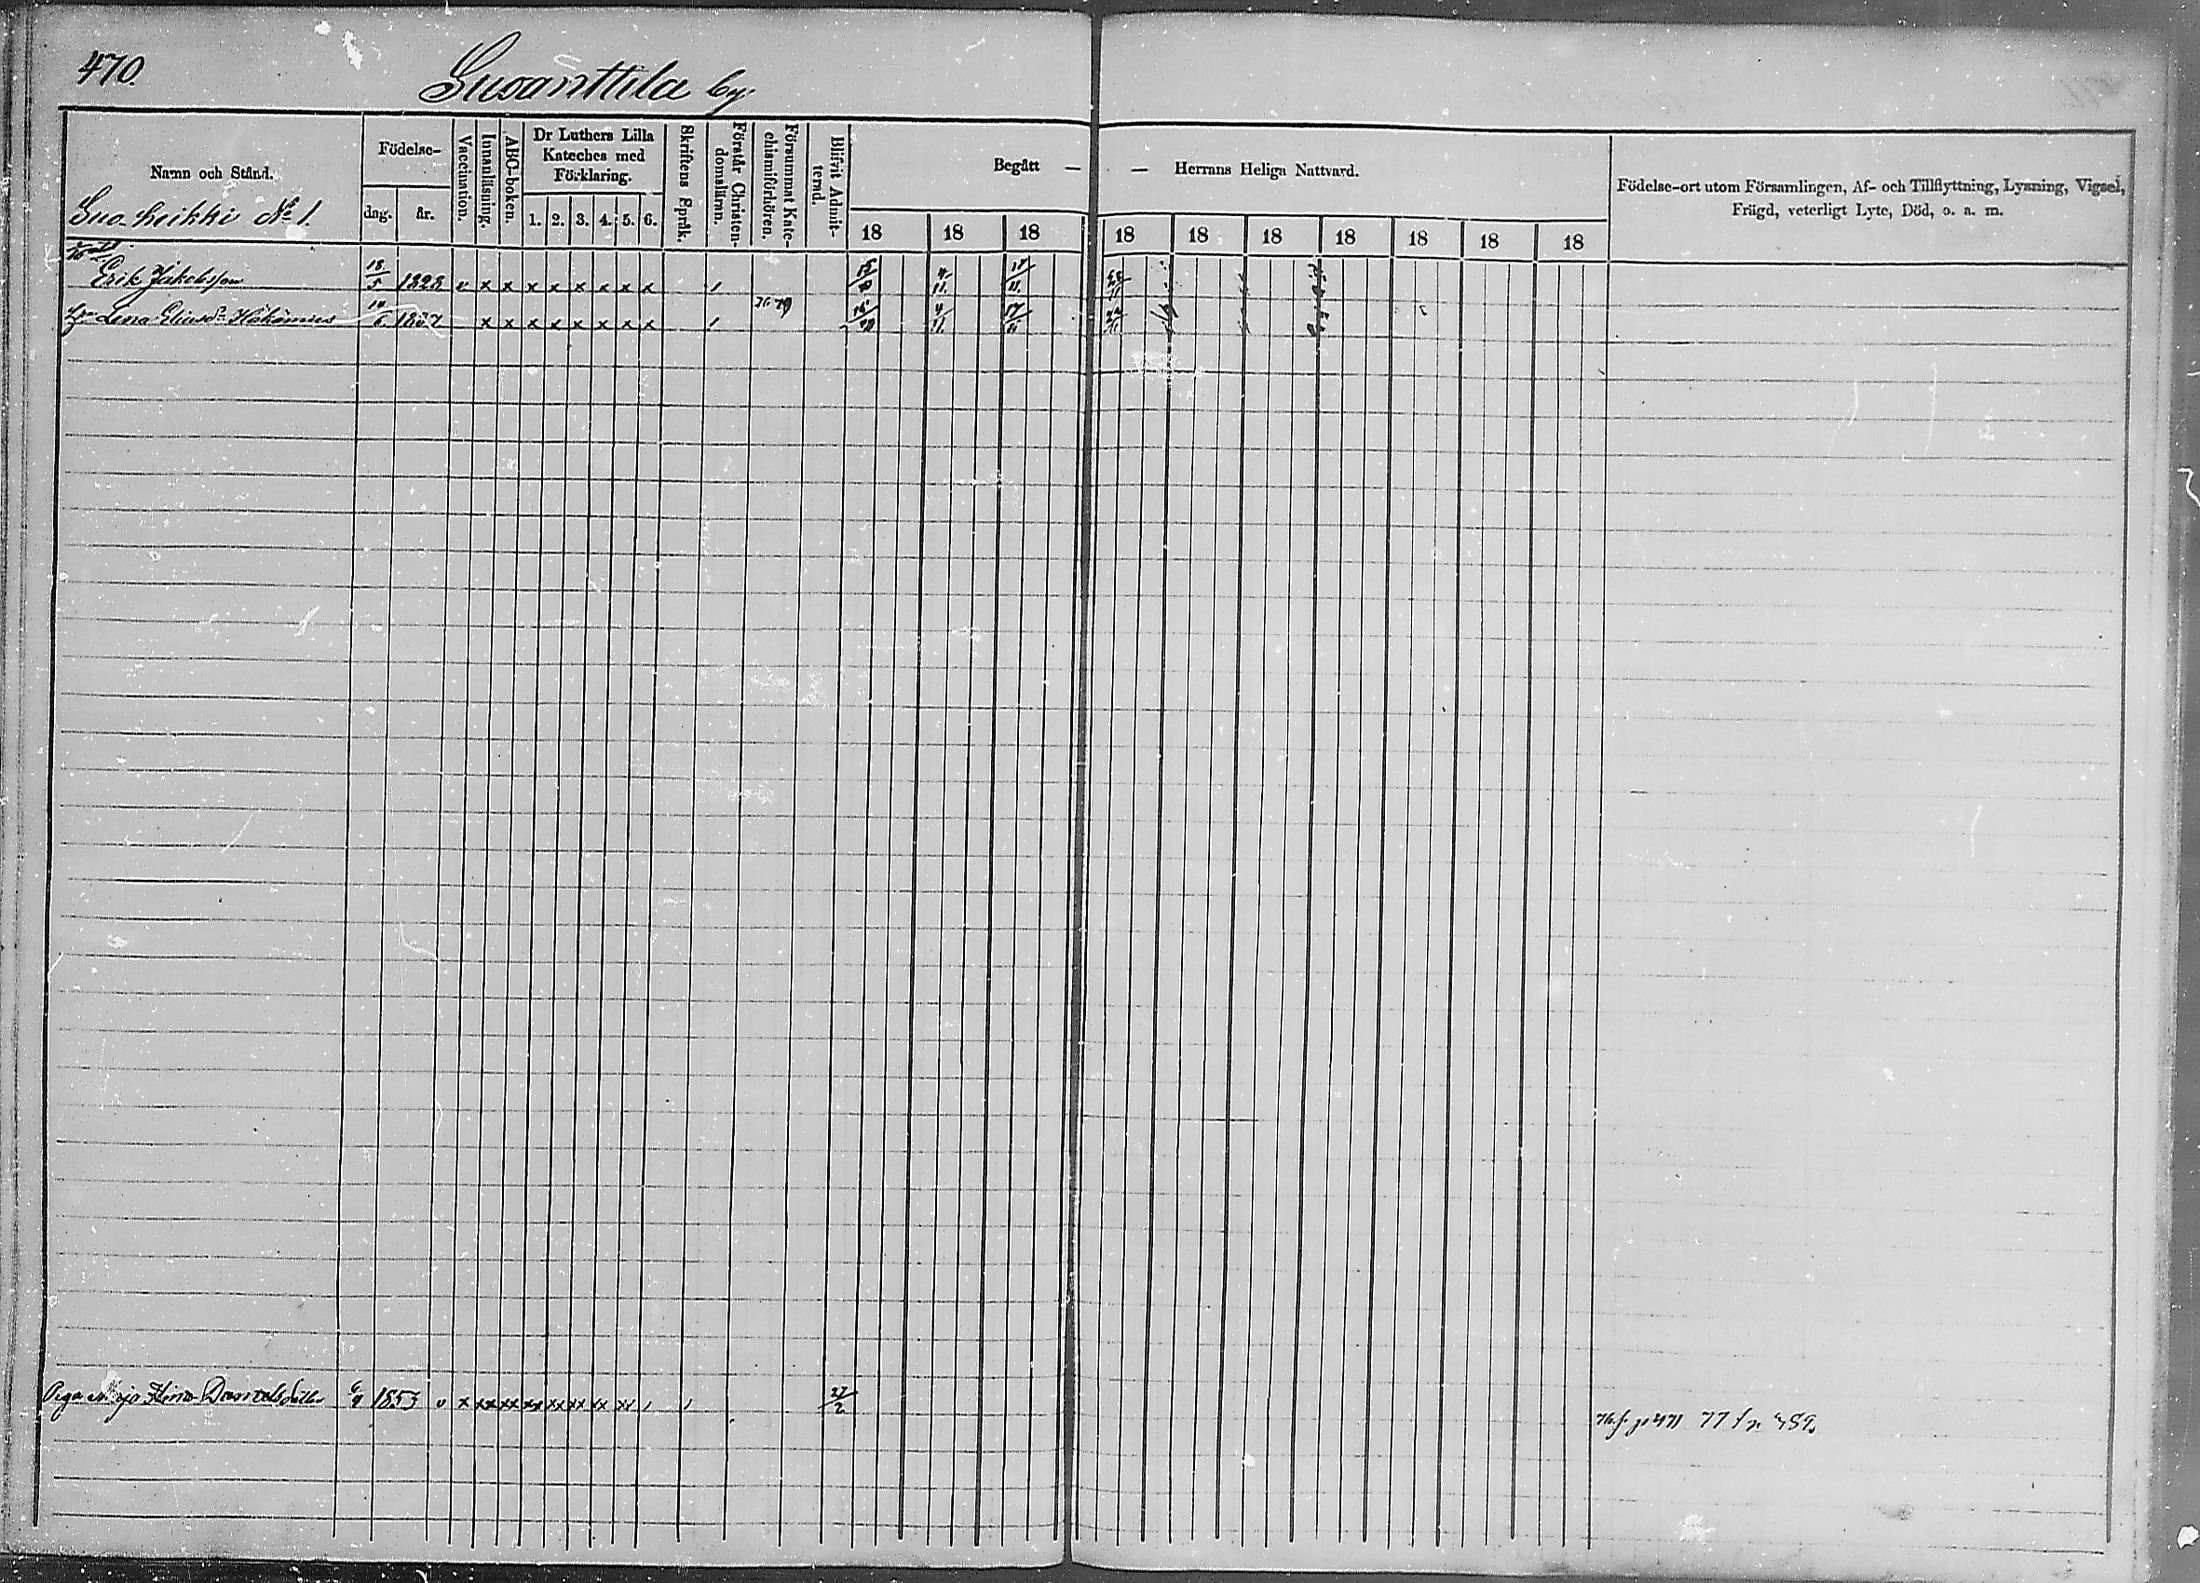 470.
Susanttila by.
Namn och Stånd.
Födelse-
dag.
år.
Vaccination.
Innanläsning.
ABC-boken.
Dr Luthers Lilla
Kateches med
Förklaring.
1. 2. 3. 4. 5. 6.
Skriftens Språk.
Förstår Christen-
domsläran.
Försummat Kate-
chismiförhören.
Blifvit Admit-
terad.
Begått —
— Herrans Heliga Nattvard.
18 18 18 18 18 18 18 18 18 18
Födelse-ort utom Församlingen, Af- och Tillflyttning, Lysning, Vigsel,
Frägd, veterligt Lyte, Död, o. a. m.
Suo-heikki No 1.
Erik Jakobsson 18/5 1828 v x x x x x x x x / 4/11
Lena Eliasdr x x x x x x x x / 4/11 17/11
Piga 1853 v x xx xx xx xx xx xx xx / / 27/2 76 f. p 471 77 f p. 489.